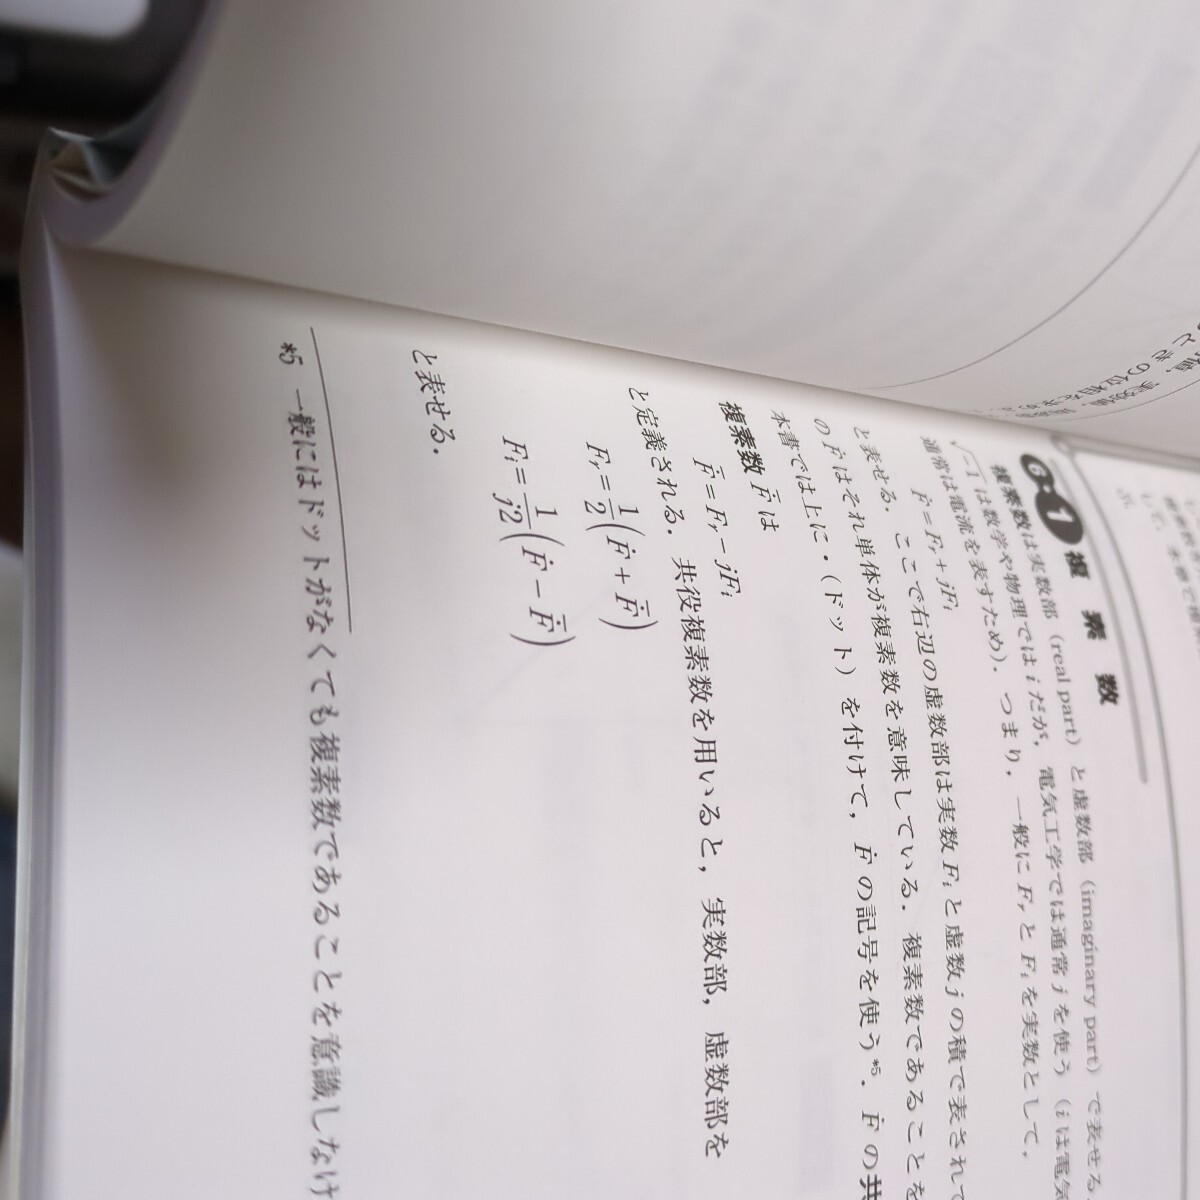 6・1 複素数
複素数は実数部 (real part) と虚数部 (imaginary part) で表せる
√−1 は数学や物理では i だが，電気工学では通常 j を使う (i は電気
通常は電流を表すため)．つまり，一般に Fr と Fi を実数として，
Ḟ = Fr + jFi
と表せる．ここで右辺の虚数部は実数 Fi と虚数 j の積で表されて
の Ḟ はそれ単体が複素数を意味している．複素数であることを
本書では上に・(ドット) を付けて，Ḟ の記号を使う*5．Ḟ の共
複素数 F̄ は
F̄ = Fr − jFi
と定義される．共役複素数を用いると，実数部，虚数部を
Fr = 1/2 (Ḟ + F̄)
Fi = 1/j2 (Ḟ − F̄)
と表せる．
*5 一般にはドットがなくても複素数であることを意識しなけ